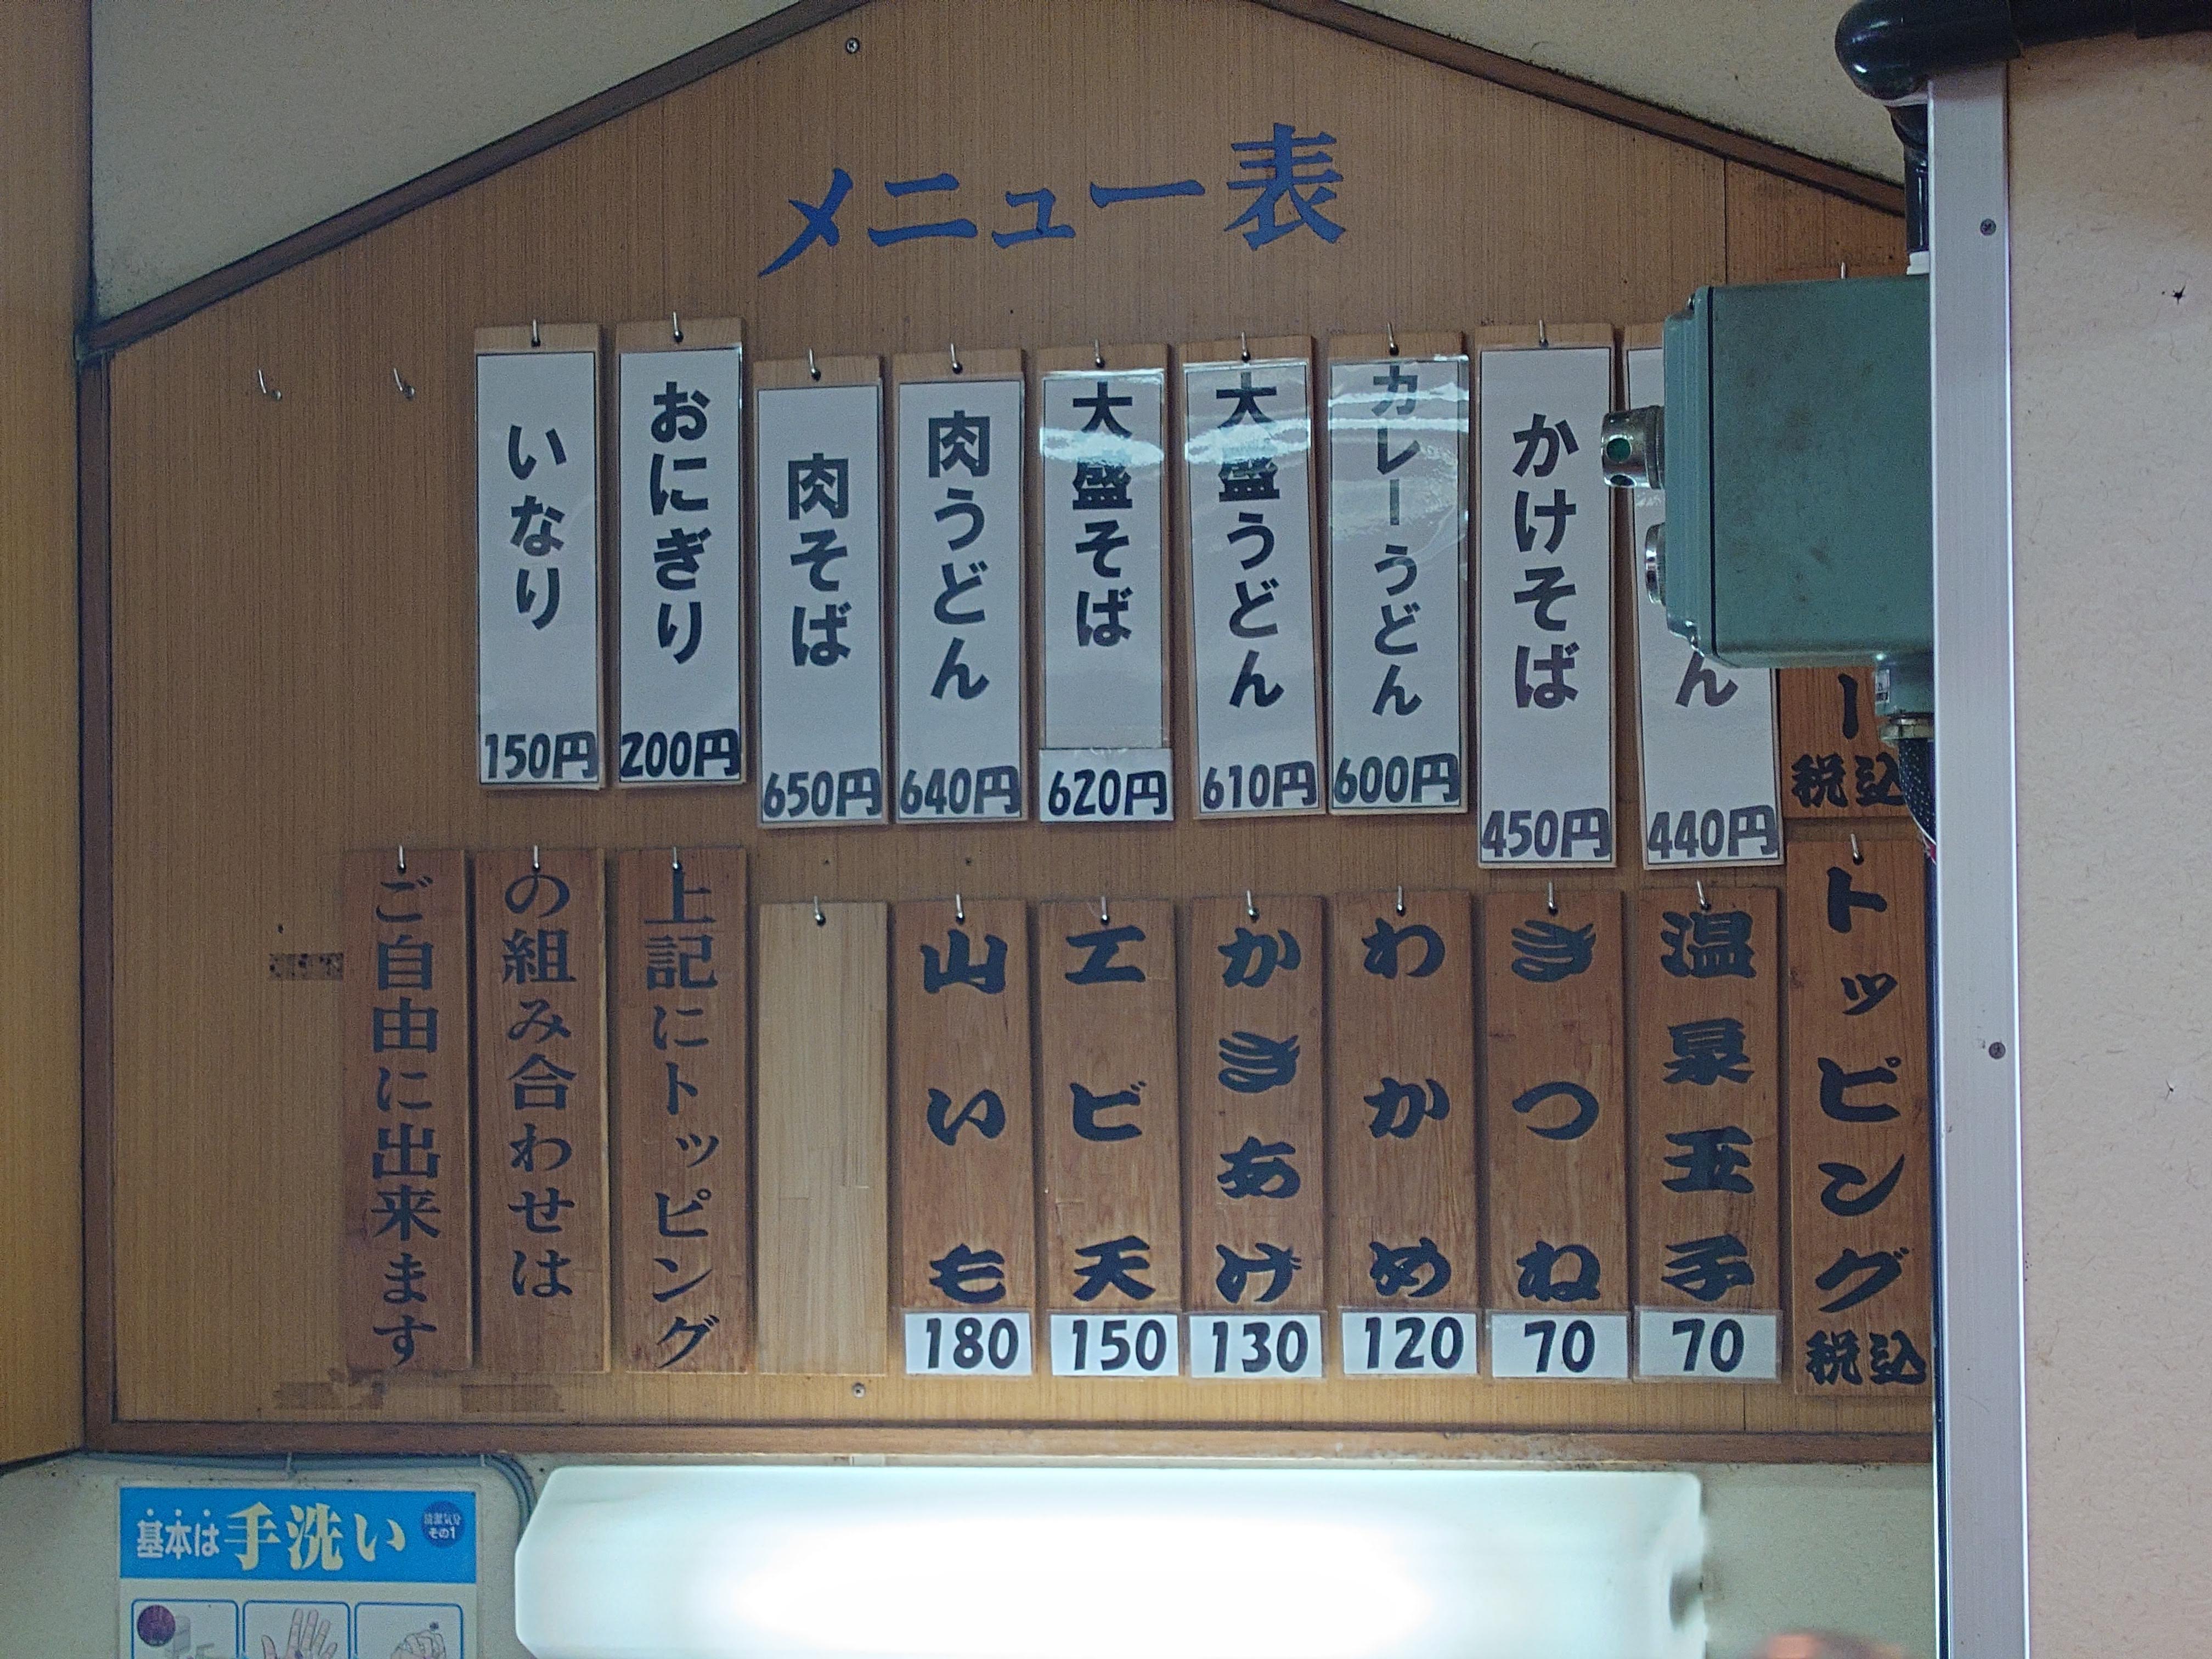 メニュー表
ー
税込
ん
440円
かけそば
450円
カレーうどん
600円
大盛うどん
610円
大盛そば
620円
肉うどん
640円
肉そば
650円
おにぎり
200円
いなり
150円
トッピング
税込
温泉玉子
70
きつね
70
わかめ
120
かきあげ
130
エビ天
150
山いも
180
上記にトッピング
の組み合わせは
ご自由に出来ます
基本は手洗い
その1